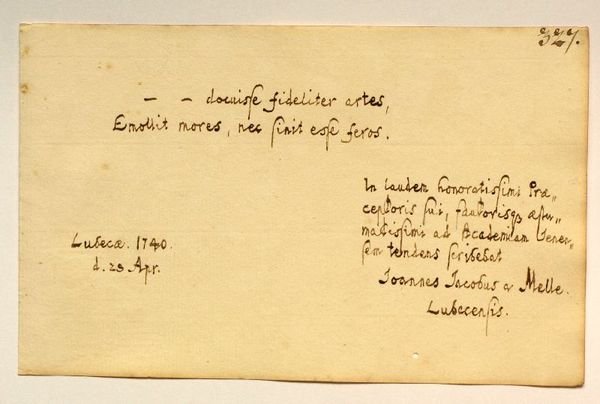 327.
— — docuisse fideliter artes,
Emollit mores, nec sinit esse feros.
In laudem honoratissimi Præ„
ceptoris sui, fautorisq; æstu„
matissimi ad Academiam Jenen„
sem tendens scribebat
Joannes Jacobus a Melle.
Lubecensis.
Lubecæ. 1740.
d. 23 Apr.